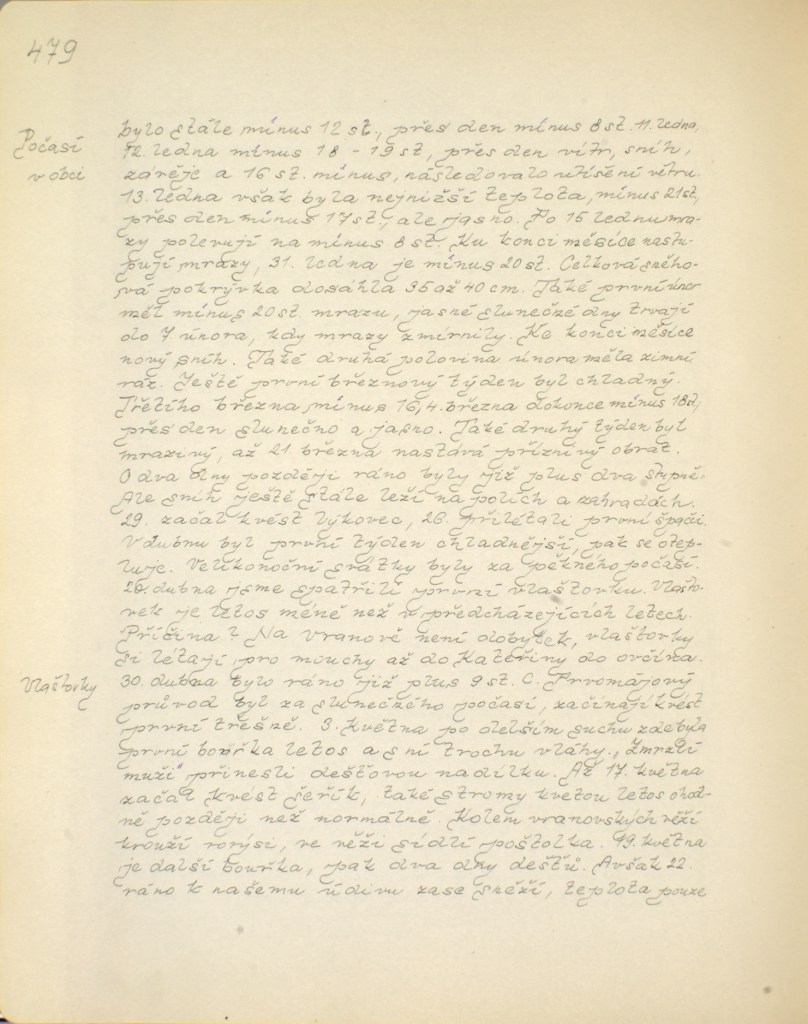 479
Počasí
v obci
bylo stále mínus 12 st., přes den mínus 8 st. 11. ledna,
12. ledna mínus 18 - 19 st, přes den vítr, sníh,
závěje a 16 st. mínus, následovalo utišení větru.
13. ledna však byla nejnižší teplota, mínus 21 st,
přes den mínus 17 st, ale jasno. Po 15 lednu mra-
zy polevují na mínus 8 st. Ku konci měsíce nastu-
pují mrazy, 31. ledna je mínus 20 st. Celková sněho-
vá pokrývka dosáhla 35 až 40 cm. Také první únor
měl mínus 20 st. mrazu, jasné slunečné dny trvají
do 7 února, kdy mrazy zmírnily. Ke konci měsíce
nový sníh. Také druhá polovina února měla zimní
ráz. Ještě první březnový týden byl chladný.
Třetího března mínus 16, 4. března dokonce mínus 18 st,
přes den slunečno a jasno. Také druhý týden byl
mrazivý, až 21 března nastává příznivý obrat.
O dva dny později ráno byly již plus dva stupně.
Ale sníh ještě stále leží na polích a zahradách.
29. začal kvést lýkovec, 26. přilétali první špačci.
V dubnu byl první týden chladnější, pak se otep-
luje. Velikonoční svátky byly za pěkného počasí.
20. dubna jsme spatřili první vlaštovku. Vlašto-
vek je letos méně než v předcházejících letech.
Příčina? Na Vranově není dobytek, vlaštovky
si létají pro mouchy až do Kateřiny do ovčína.
Vlaštovky
30. dubna bylo ráno již plus 9 st. C. Prvomájový
průvod byl za slunečného počasí, začínají kvést
první třešně. 3. Května po delším suchu zde byla
první bouřka letos a s ní trochu vláhy. „Zmrzlí
muži" přinesli dešťovou nadílku. Až 17. května
začal kvést šeřík, také stromy kvetou letos ohod-
ně později než normálně. Kolem vranovských věží
krouží rorýsi, ve věži sídlí poštolka. 19. května
je další bouřka, pak dva dny deštů. Avšak 22.
ráno k našemu údivu zase sněží, teplota pouze